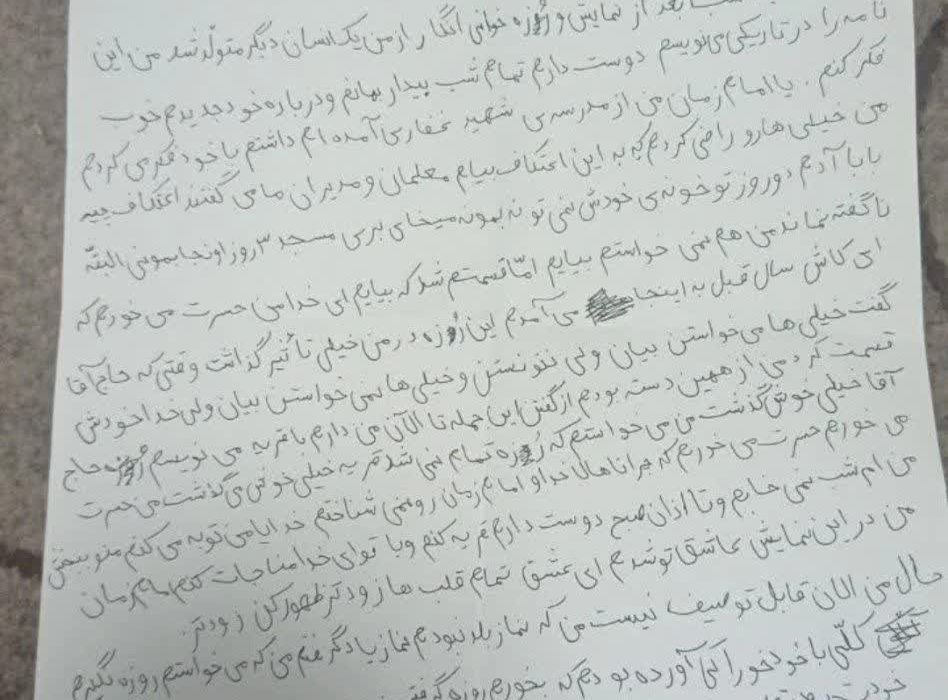 بعد از نمایش و روزه خوانی انگار از من یک انسان دیگر متولد شد من این
نامه را در تاریکی می نویسم دوست دارم تمام شب بیدار بمانم و درباره خود جدیدم خوب
فکر کنم. یا امام زمان من از مدرسه ی شهید غفاری آمده ام داشتم با خود فکر می کردم
من خیلی هارو راضی کردم که به این اعتکاف بیام معلمان و مدیران ما می گفتند اعتکاف چیه
بابا آدم دو روز تو خونه ی خودش نمی تونه بمونه میخای بری مسجد ۳ روز اونجا بمونی البته
ناگفته نماند من هم نمی خواستم بیایم امّا قسمتم شد که بیایم ای خدا من حسرت می خورم که
ای کاش سال قبل به اینجا می آمدم این روزه در من خیلی تأثیر گذاشت وقتی که حاج آقا
گفت خیلی ها می خواستن بیان ولی نتونستن و خیلی ها نمی خواستن بیان ولی خدا خودش
قسمت کرد من از همین دسته بودم از گفتن این جمله تا الآن من دارم با قریه می نویسم حاج
آقا خیلی خوش گذشت من می خواستم که روزه تمام نمی شد قریه خیلی خوش می گذشت من حسرت
می خورم حسرت می خورم که چرا تا حالا خدا و امام زمان رو نمی شناختم خدایا من توبه می کنم منو ببخش
من ام شب نمی خابم و تا اذان صبح دوست دارم قریه کنم و با تو ای خدا مناجات کنم امام زمان
من در این نمایش عاشق تو شدم ای عشق تمام قلب ها زود تر ظهور کن زود تر.
حال من الان قابل توصیف نیست من که نماز بلد نبودم نماز یاد گرفتم من که می خواستم روزه نگیرم
کلّی با خود خوراکی آورده بودم که بخورم روزه